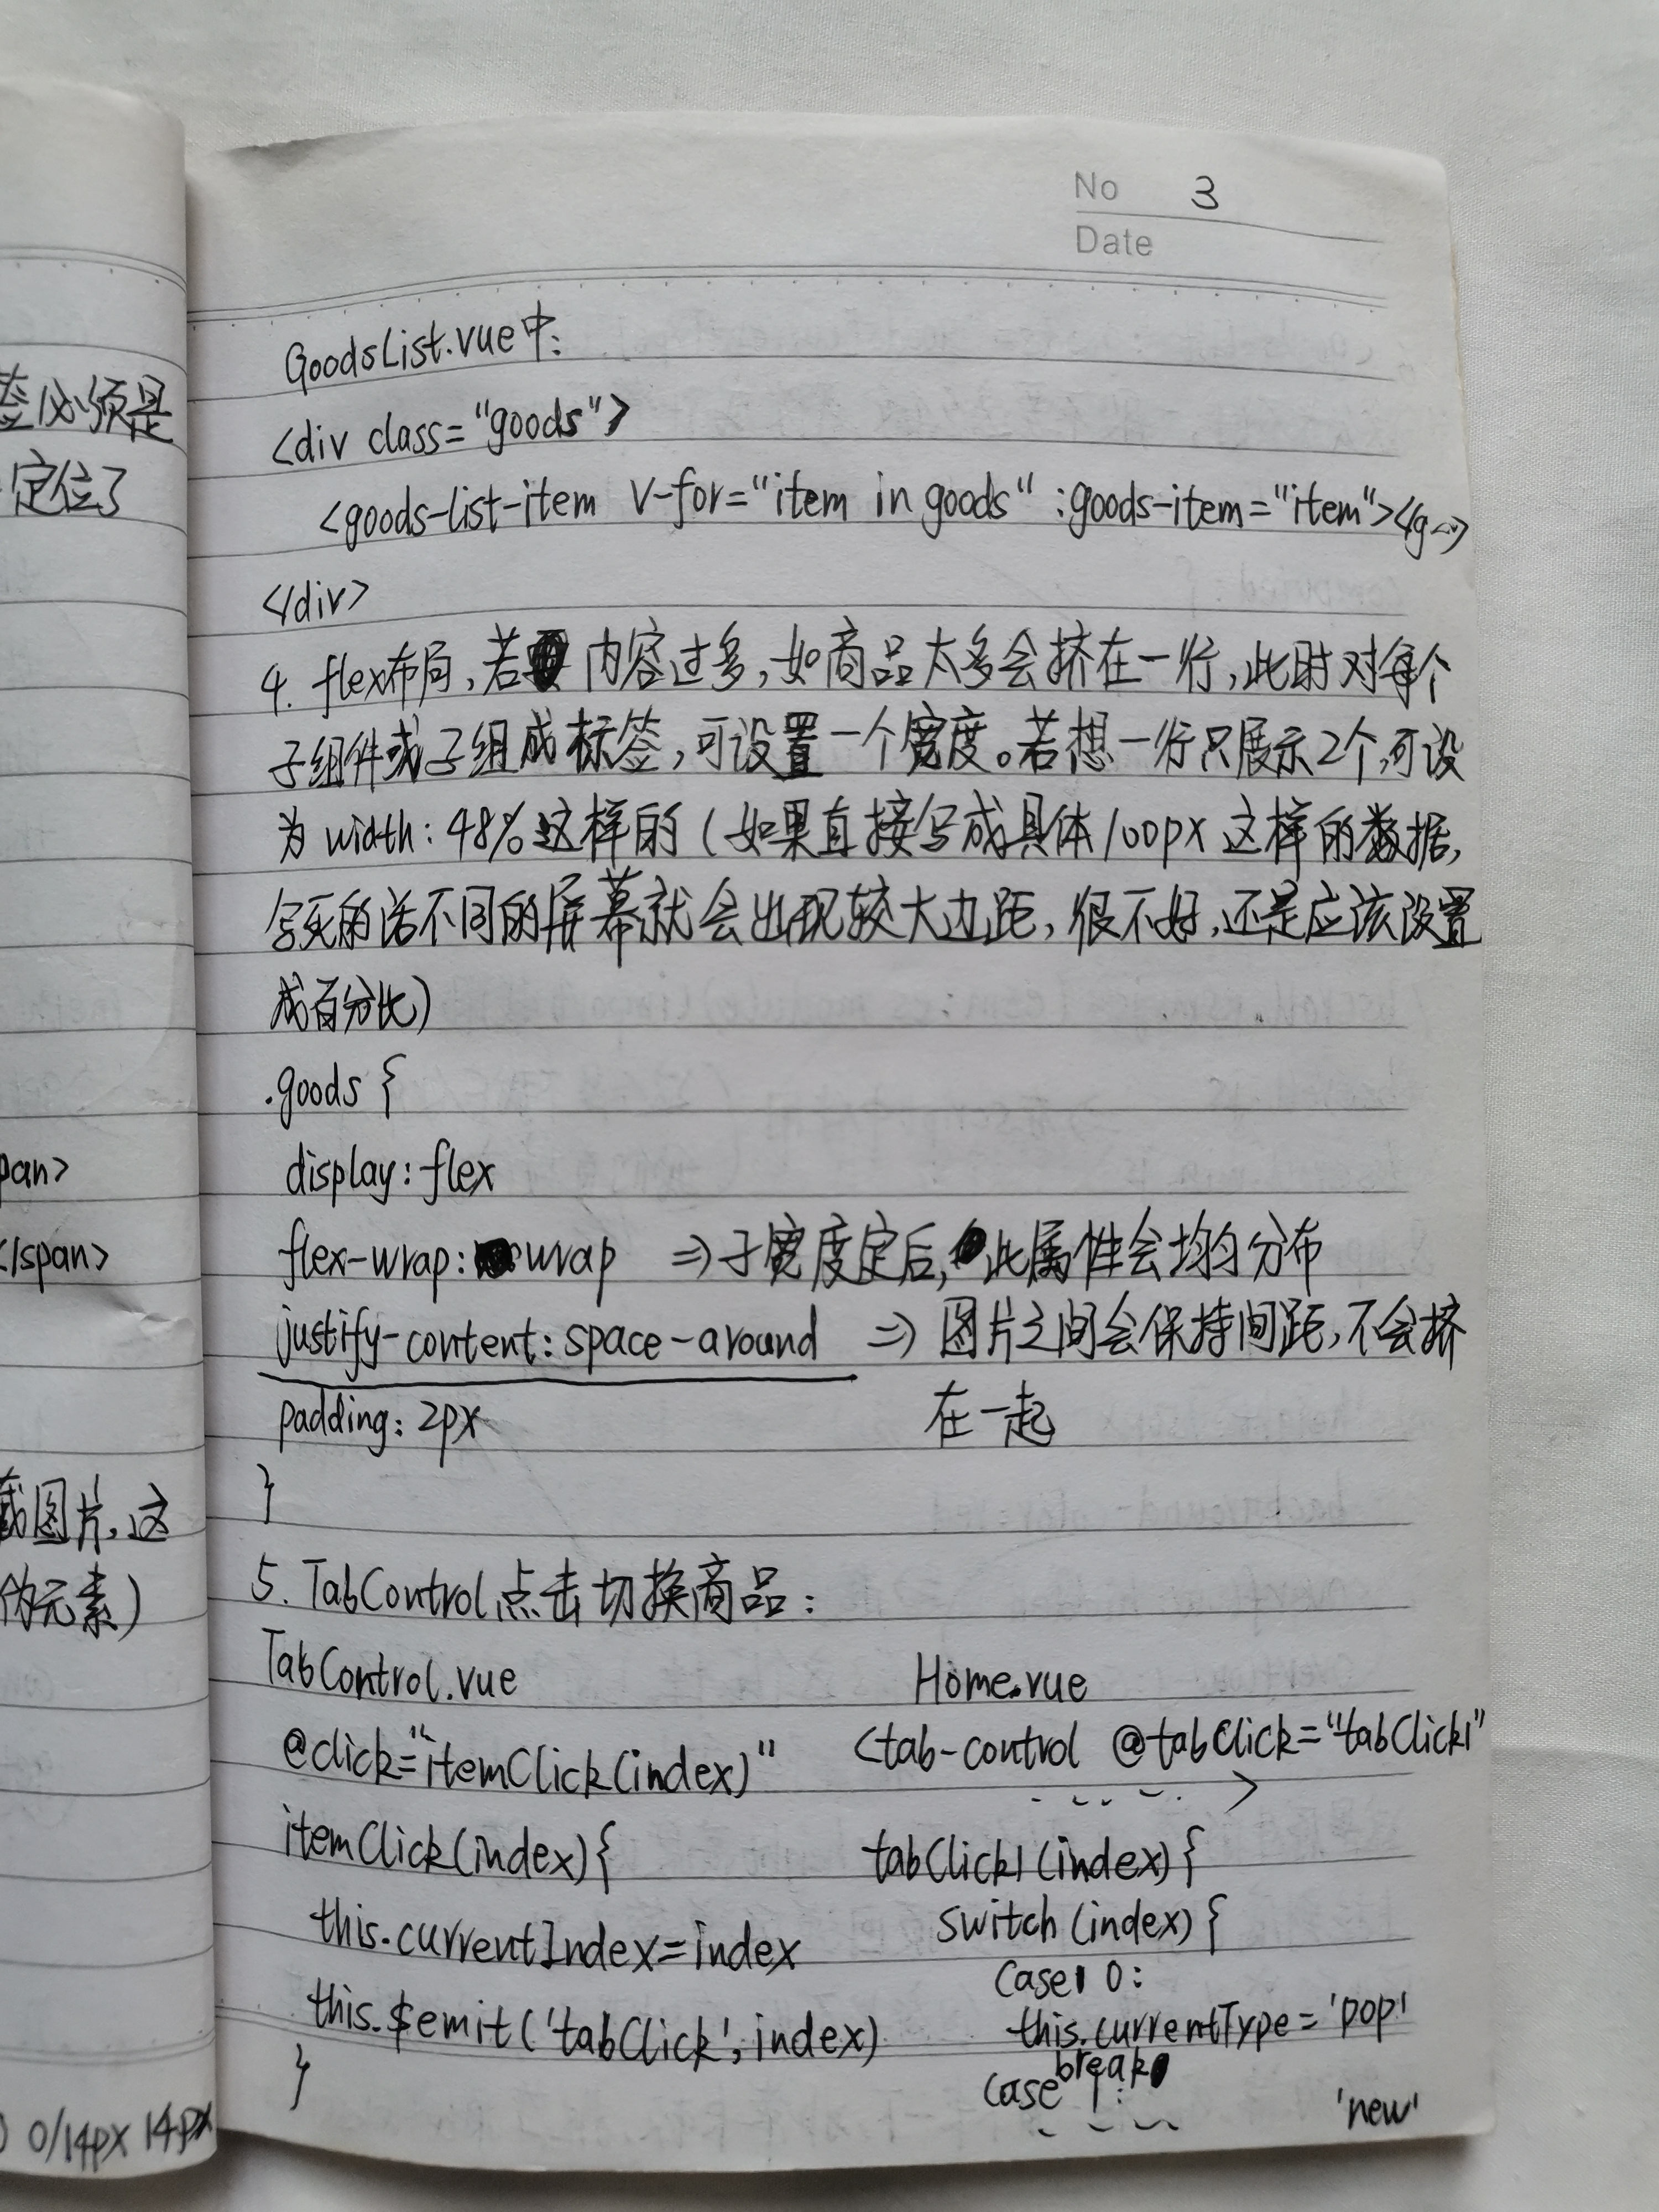 No 3
Date
签必须是
定位了
pan>
</span>
截图片,这
伪元素)
0/14px 14px
GoodsList.vue中:
<div class="goods">
<goods-list-item v-for="item in goods" :goods-item="item"></g~>
</div>
4. flex布局,若内容过多,如商品太多会挤在一行,此时对每个
子组件或子组成标签,可设置一个宽度。若想一行只展示2个,可设
为width: 48%这样的(如果直接写成具体100px这样的数据,
写死的话不同的屏幕就会出现较大边距,很不好,还是应该设置
成百分比)
.goods {
display: flex
flex-wrap: wrap => 子宽度定后,此属性会均匀分布
justify-content: space-around => 图片之间会保持间距,不会挤
在一起
padding: 2px
}
5. TabControl点击切换商品:
TabControl.vue
@click="itemClick(index)"
itemClick(index){
this.currentIndex=index
this.$emit('tabClick', index)
}
Home.vue
<tab-control @tabClick="tabClick1"
>
tabClick1(index){
switch(index){
case 0:
this.currentType='pop'
break
case 1:
'new'